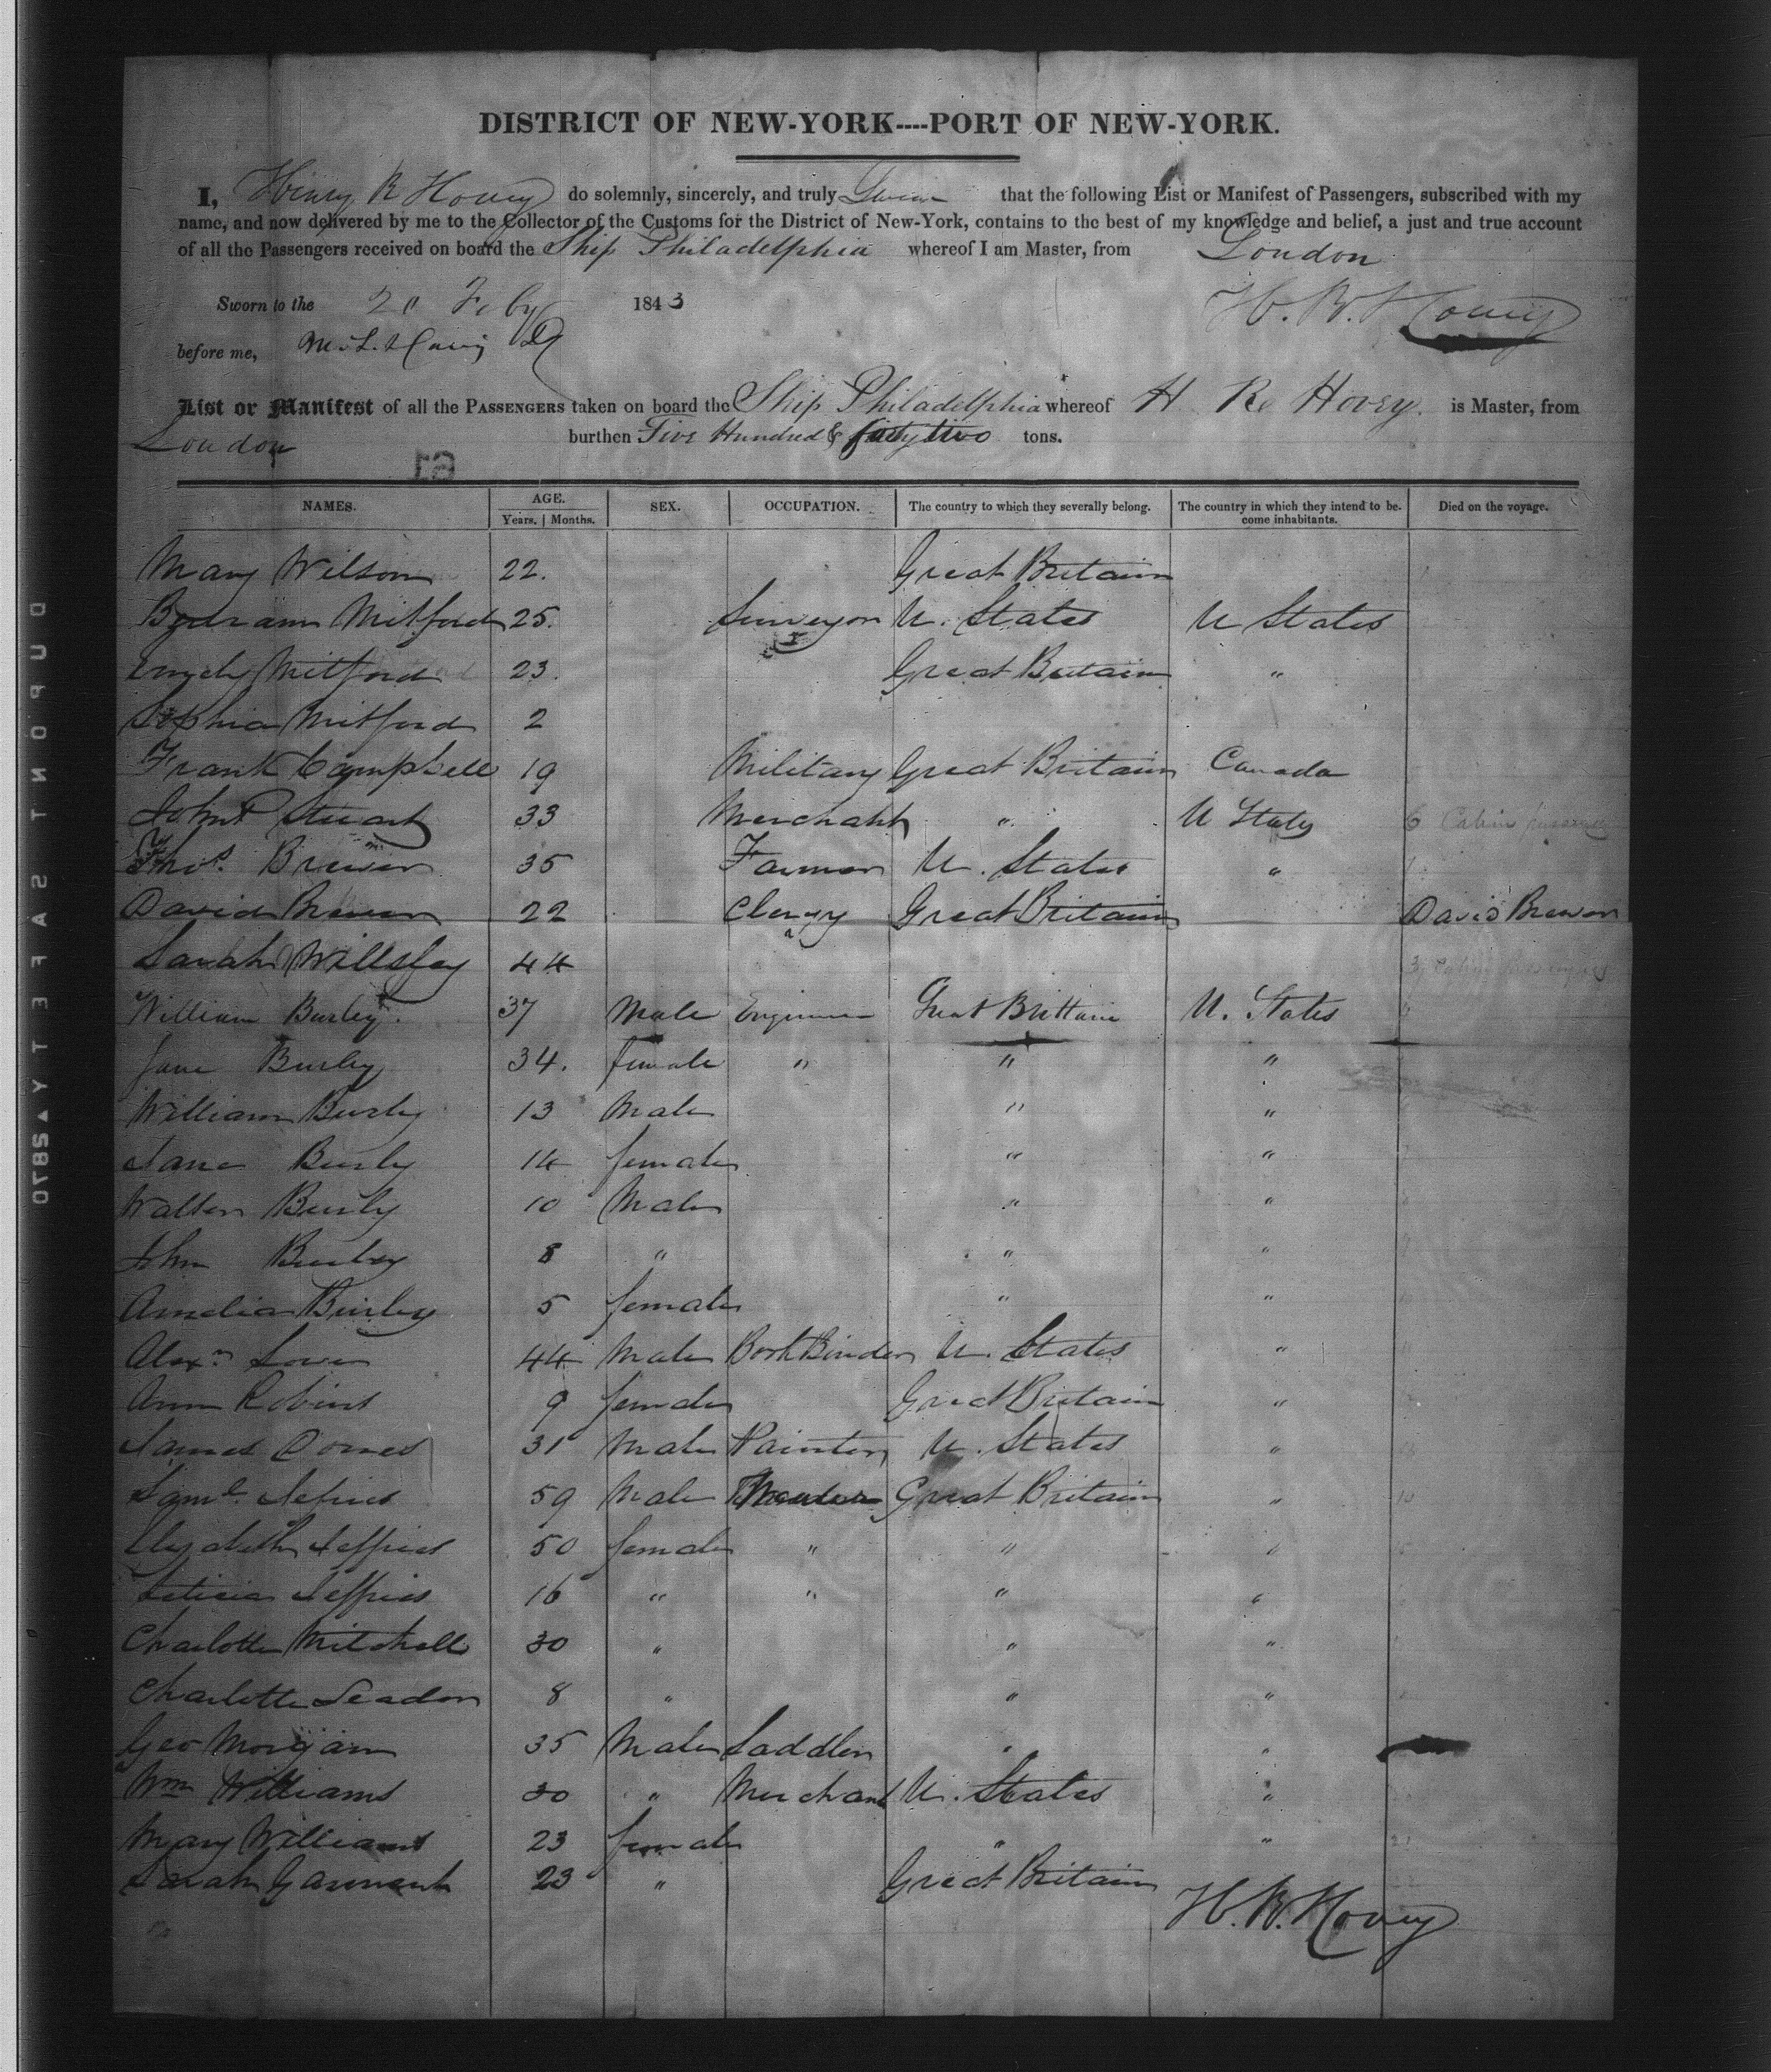 DISTRICT OF NEW-YORK----PORT OF NEW-YORK.
I, Henry R Hovey do solemnly, sincerely, and truly Swear that the following List or Manifest of Passengers, subscribed with my
name, and now delivered by me to the Collector of the Customs for the District of New-York, contains to the best of my knowledge and belief, a just and true account
of all the Passengers received on board the Ship Philadelphia whereof I am Master, from London
Sworn to the Feby 1843 H. R. Hovey
before me,
List or Manifest of all the PASSENGERS taken on board the Ship Philadelphia whereof H R Hovey. is Master, from
London burthen Five Hundred & forty two tons.
NAMES. AGE. SEX. OCCUPATION. The country to which they severally belong. The country in which they intend to be- Died on the voyage.
Years. | Months. come inhabitants.
Mary Wilson 22. Great Britain
Mitford 25. Surveyor U. States U States
Mitford 23. Great Britain "
Sophia Mitford 2
Frank Campbell 19 Military Great Britain Canada
John P Stuart 33 Merchant " U States 6 Cabin
Thos. Brewer 35 Farmer U. States "
David Brewer 22 Clergy Great Britain David Brewer
Sarah 44 3
William Burley 37 Male Engineer Great Brittain U. States
Jane Burley 34. female " " "
William Burly 13 Male " "
Jane Burly 14 female " "
Walter Burly 10 Male " "
John Burley 8 " " "
Amelia Burley 5 female " "
Alexr 44 Male Book Binder U. States "
Ann Robins 9 female Great Britain "
James 31 Male Painter U. States "
Saml. Jefries 59 Male Great Britain " 10
Elizabeth Jeffries 50 female " " "
Leticia Jeffries 16 " " " "
Charlotte Mitchell 30 " " "
Charlotte Seadon 8 " " "
Geo Morgan 35 Male Saddler " "
Wm Williams 30 " Merchant U. States "
Mary Williams 23 female " " 21
Sarah Garment 23 " Great Britain
H. R. Hovey